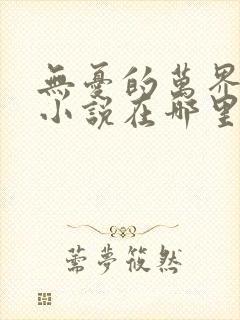 無憂的萬界
小說在哪里
薷夢筱然